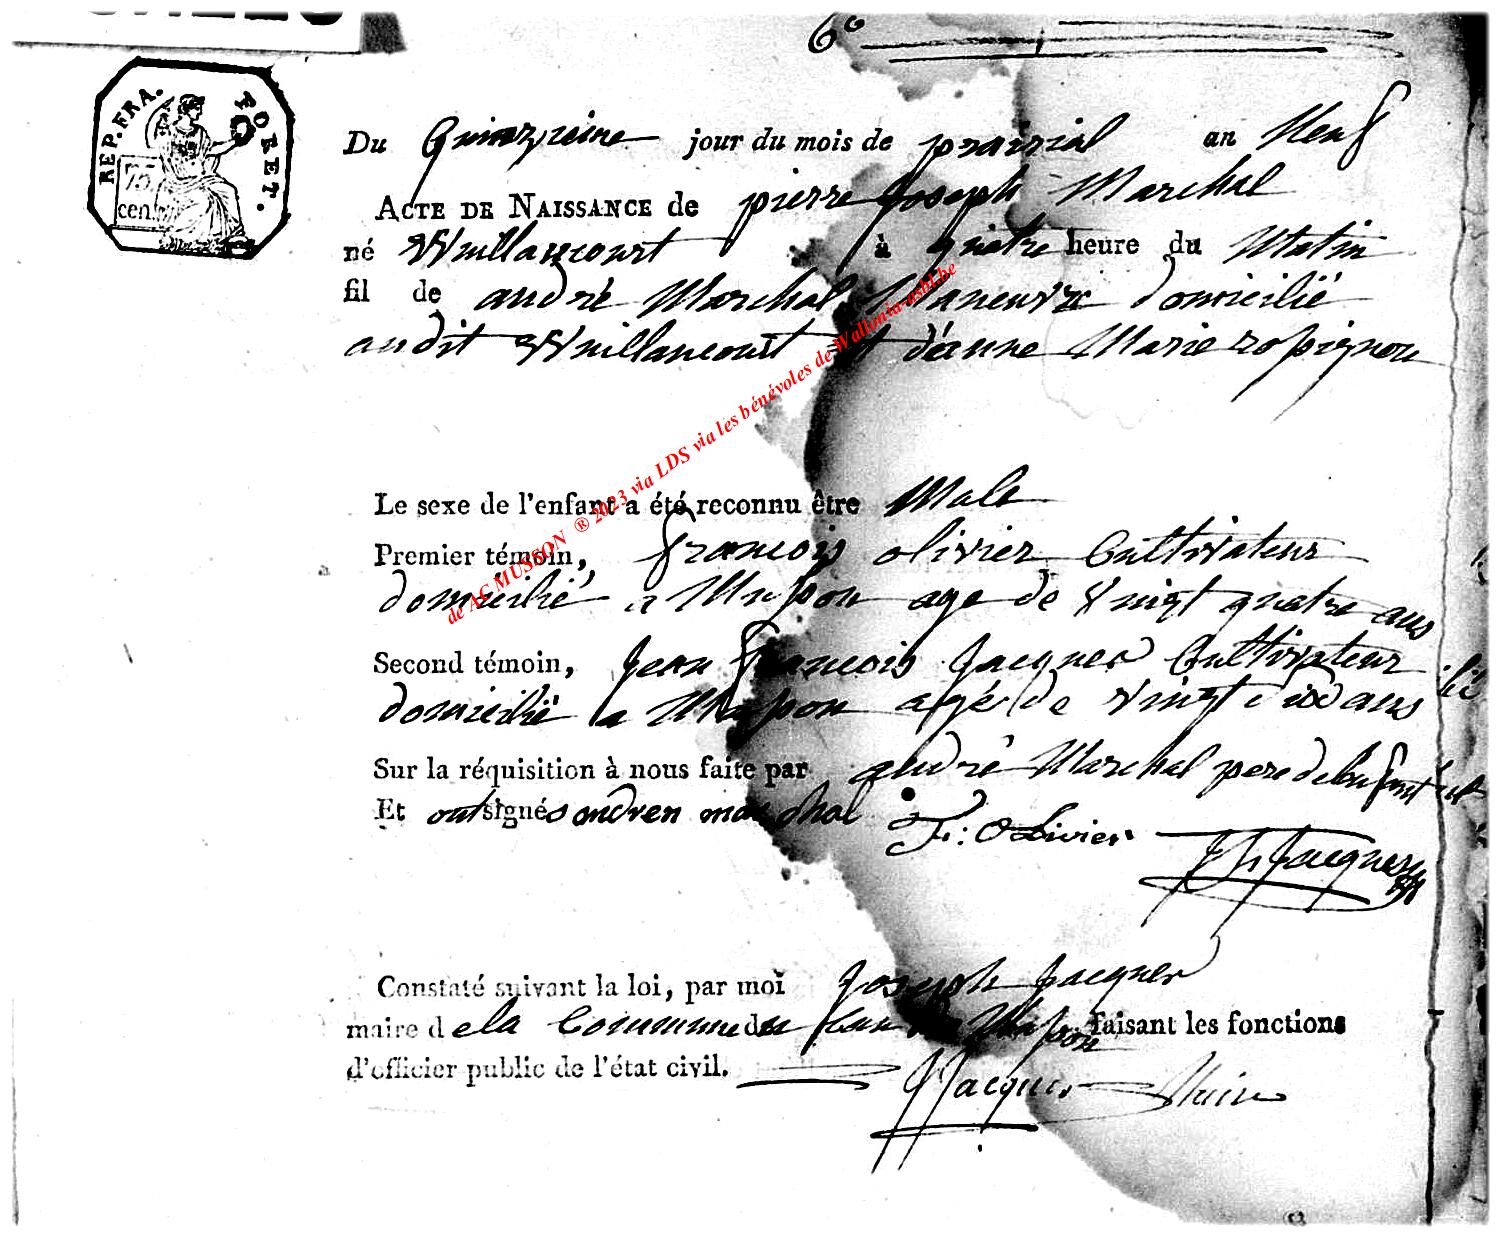 6°
REP. FRA.
FOBET.
75
cen.
Du quinzieme jour du mois de prairial an Neuf
ACTE DE NAISSANCE de pierre Joseph Marchal
né Willancourt à quatre heure du Matin
fil de andré Marchal Maneuvre domicilié
audit Willancourt et d'anne Marie ropignon
Le sexe de l'enfant a été reconnu être Male
Premier témoin, francois olivier Cultivateur
domicilié a Musson age de vingt quatre ans
Second témoin, Jean francois Jacques Cultivateur
domicilié a Musson agé de vingt dix ans
Sur la réquisition à nous faite par andré Marchal pere de lenfant
Et ont signés andren marchal F: Olivier
Jacques
Constaté suivant la loi, par moi Joseph Jacques
maire de la Commune de Musson faisant les fonctions
d'officier public de l'état civil.
JJacques Maire
de AC MUSSON ® 2023 via LDS via les bénévoles de Wallonia-asbl.be